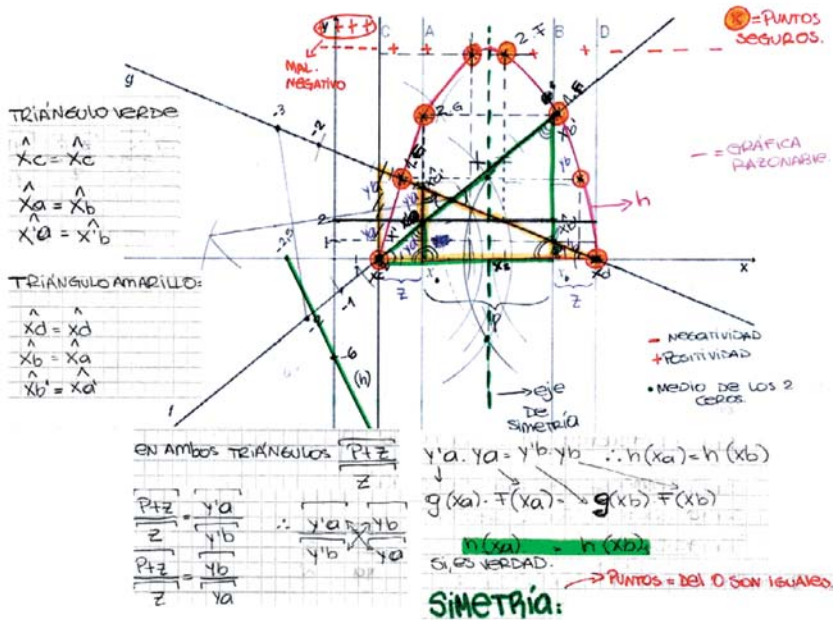 = PUNTOS
SEGUROS.
MAL.
NEGATIVO
C
A
B
D
y
g
2.F
2.G
TRIÁNGULO VERDE
Xc = Xc
Xa = Xb
X'a = X'b
TRIÁNGULO AMARILLO:
Xd = Xd
Xb = Xa
Xb' = Xa'
-3
-2
-2,5
-1
-6
(h)
2
1
f
z
P
z
Xd
x
h
GRÁFICA
RAZONABLE
- NEGATIVIDAD
+ POSITIVIDAD
• MEDIO DE LOS 2
CEROS.
eje
DE
SIMETRÍA
EN AMBOS TRIÁNGULOS P+Z
Z
P+Z = y'a
Z y'b
P+Z = yb
Z ya
∴ y'a yb
y'b ya
y'a . ya = y'b . yb ∴ h(xa) = h(xb)
g(xa) . F(xa) = g(xb) F(xb)
h(xa) = h(xb)
SI, ES VERDAD.
PUNTOS = DEL 0 SON IGUALES.
SIMETRÍA: